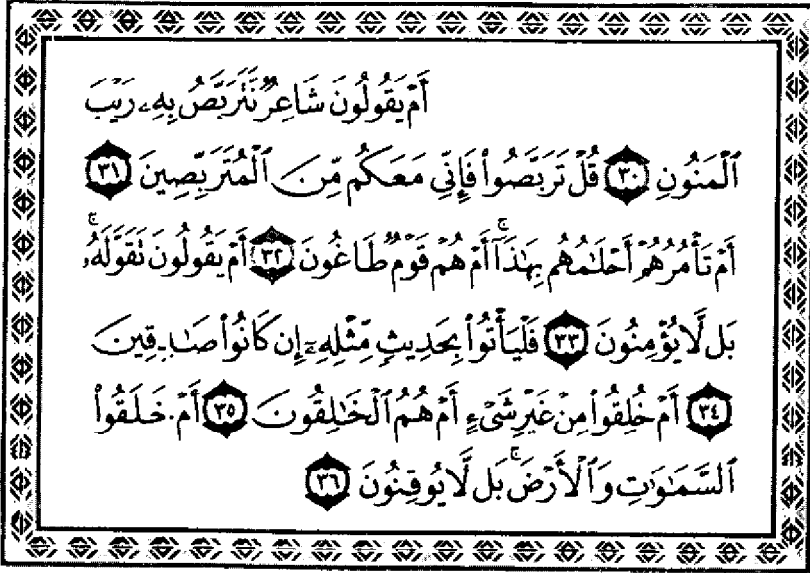 أَمْ يَقُولُونَ شَاعِرٌ نَّتَرَبَّصُ بِهِۦ رَيْبَ
ٱلْمَنُونِ ٣٠ قُلْ تَرَبَّصُوا۟ فَإِنِّى مَعَكُم مِّنَ ٱلْمُتَرَبِّصِينَ ٣١
أَمْ تَأْمُرُهُمْ أَحْلَٰمُهُم بِهَٰذَآ ۚ أَمْ هُمْ قَوْمٌ طَاغُونَ ٣٢ أَمْ يَقُولُونَ تَقَوَّلَهُۥ ۚ
بَل لَّا يُؤْمِنُونَ ٣٣ فَلْيَأْتُوا۟ بِحَدِيثٍ مِّثْلِهِۦٓ إِن كَانُوا۟ صَٰدِقِينَ
٣٤ أَمْ خُلِقُوا۟ مِنْ غَيْرِ شَىْءٍ أَمْ هُمُ ٱلْخَٰلِقُونَ ٣٥ أَمْ خَلَقُوا۟
ٱلسَّمَٰوَٰتِ وَٱلْأَرْضَ ۚ بَل لَّا يُوقِنُونَ ٣٦